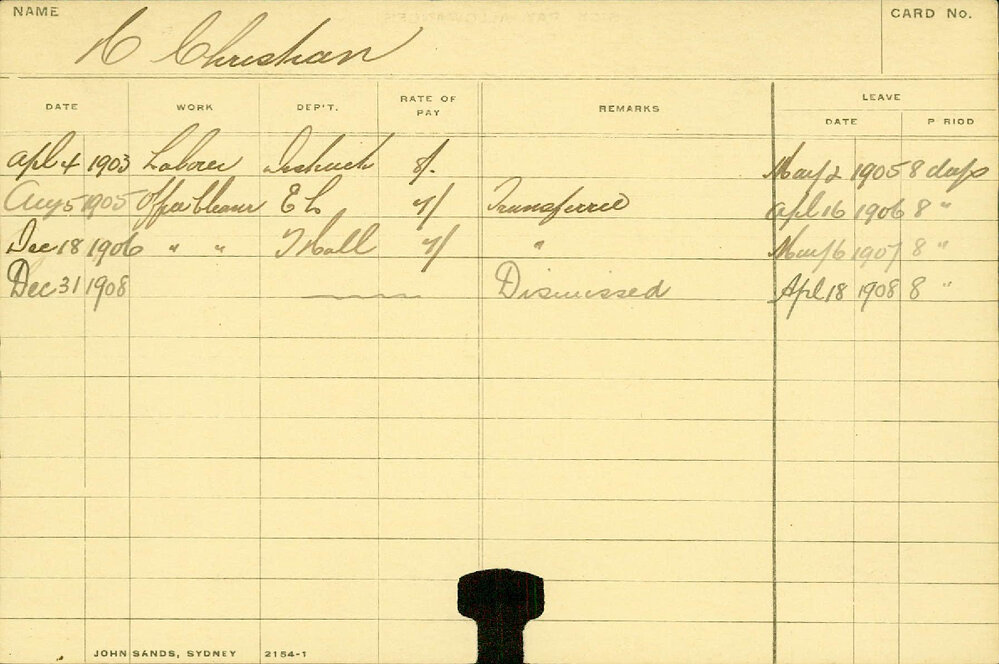 NAME
CARD No.
C Christian
DATE WORK DEP'T. RATE OF PAY REMARKS LEAVE
DATE P RIOD
Apl 4 1903 Laborer 8/. May 2 1905 8 days
Aug 5 1905 Office Cleaner E L 7/ Transferred Apl 16 1906 8 "
Dec 18 1906 " " T Hall 7/ " May 6 1907 8 "
Dec 31 1908 Dismissed Apl 18 1908 8 "
JOHN SANDS, SYDNEY 2154-1